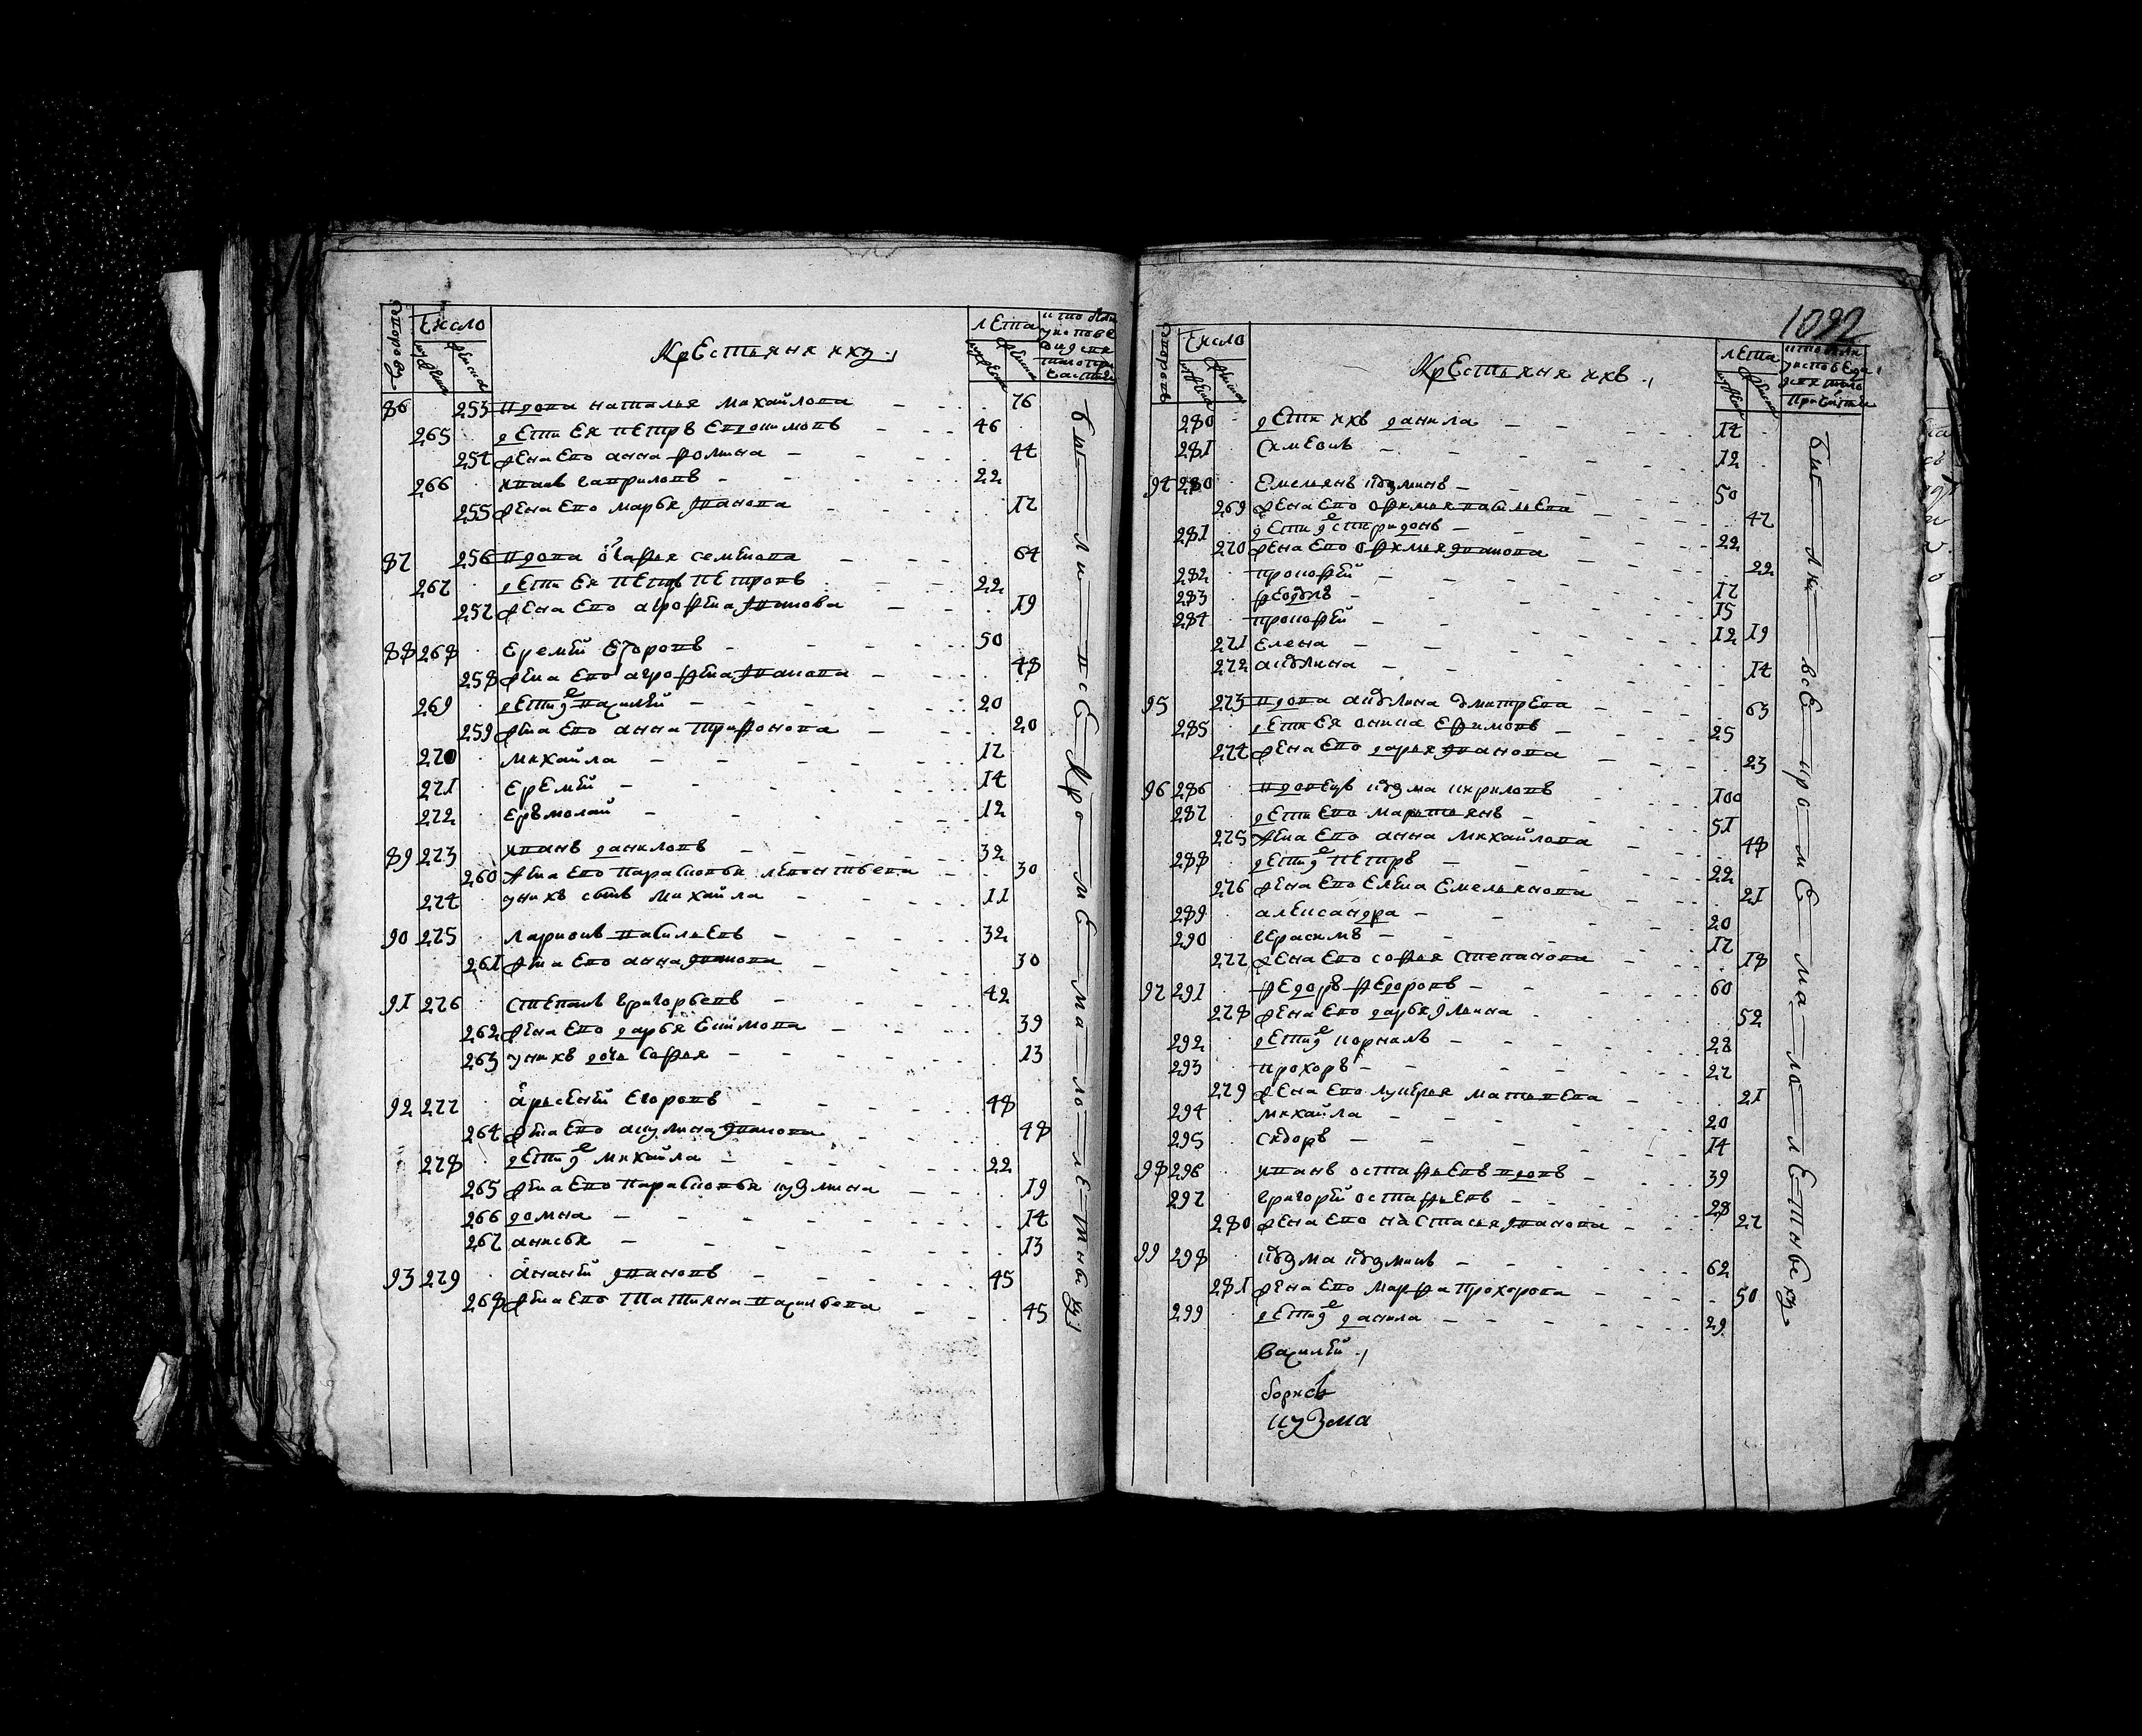 Число
Крестьяня ихъ
лета
86 253 вдова наталья михайлова 76
265 дети ея петръ евдокимовъ 46
254 жена ево анна фомина 44
266 иванъ гавриловъ 22
255 жена ево марья иванова 17
87 256 вдова семенова 64
267 дети ея петръ петровъ 22
257 жена ево агрофена иванова 19
88 268 еремей егоровъ 50
258 жена ево агрофена иванова 48
269 дети василей 20
259 жена ево анна трифонова 20
270 михайла 17
271 еремей 14
272 ермолай 12
89 273 иванъ даниловъ 32
260 жена ево парасковья леонтьева 30
274 у нихъ сынъ михайла 11
90 275 ларионъ павильевъ 32
261 жена ево анна иванова 30
91 276 степанъ григорьевъ 42
262 жена ево дарья 39
263 у нихъ дочь софья 13
92 277 арсеней егоровъ 48
264 жена ево акулина иванова 48
278 дети михайла 22
265 жена ево парасковья кузмина 19
266 домна 14
267 анисья 13
93 279 ананей ивановъ 45
268 жена ево татияна васильева 45
были все кроме малолетныхъ
1092
Число
Крестьяня ихъ
лета
280 дети ихъ данила 14
281 симеонъ 12
94 280 емельянъ кузминъ 50
269 жена ево офимья павльева 47
281 дети спиридонъ 22
270 жена ево офимья иванова 22
282 прокофей 17
283 федоръ 15
284 прокофей 12
271 елена 19
272 акулина 14
95 273 вдова акулина дмитрева 63
285 дети ея осипа ефимовъ 25
274 жена ево дарья иванова 23
96 286 вдовецъ кузма кириловъ 100
287 дети ево мартьянъ 51
275 жена ево анна михайлова 48
288 дети петръ 22
276 жена ево елена емельянова 21
289 александра 20
290 герасимъ 17
277 жена ево софья степанова 18
97 291 федоръ федоровъ 60
278 жена ево дарья ильина 52
292 дети корнилъ 28
293 прохоръ 27
279 жена ево лукерья матвеева 21
294 михайла 20
295 сидоръ 14
98 296 иванъ остафьевъ вдовъ 39
297 григорей остафьевъ 28
280 жена ево настасья иванова 27
99 298 кузма кузминъ 62
281 жена ево марфа прохорова 50
299 дети данила 29
василей
борисъ
кузма
были все кроме малолетныхъ